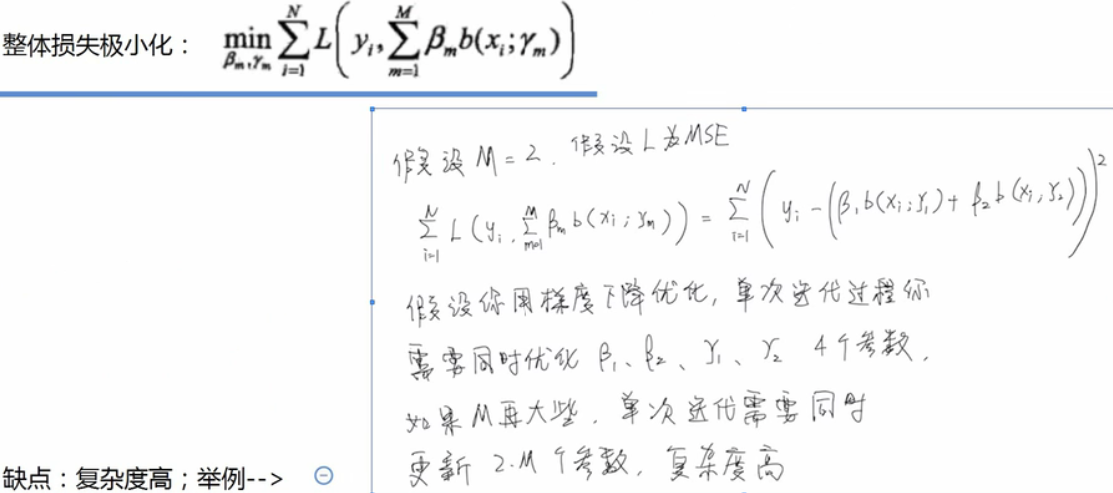 整体损失极小化： min_{β_m,γ_m} ∑_{i=1}^{N} L( y_i, ∑_{m=1}^{M} β_m b(x_i;γ_m) )
假设 M = 2. 假设 L 为 MSE
∑_{i=1}^{N} L(y_i, ∑_{m=1}^{M} β_m b(x_i;γ_m)) = ∑_{i=1}^{N} ( y_i - (β_1 b(x_i;γ_1) + β_2 b(x_i;γ_2)) )^2
假设你用梯度下降优化, 单次迭代过程你
需要同时优化 β_1、β_2、γ_1、γ_2 4个参数,
如果M再大些, 单次迭代需要同时
更新 2·M 个参数, 复杂度高
缺点：复杂度高；举例-->